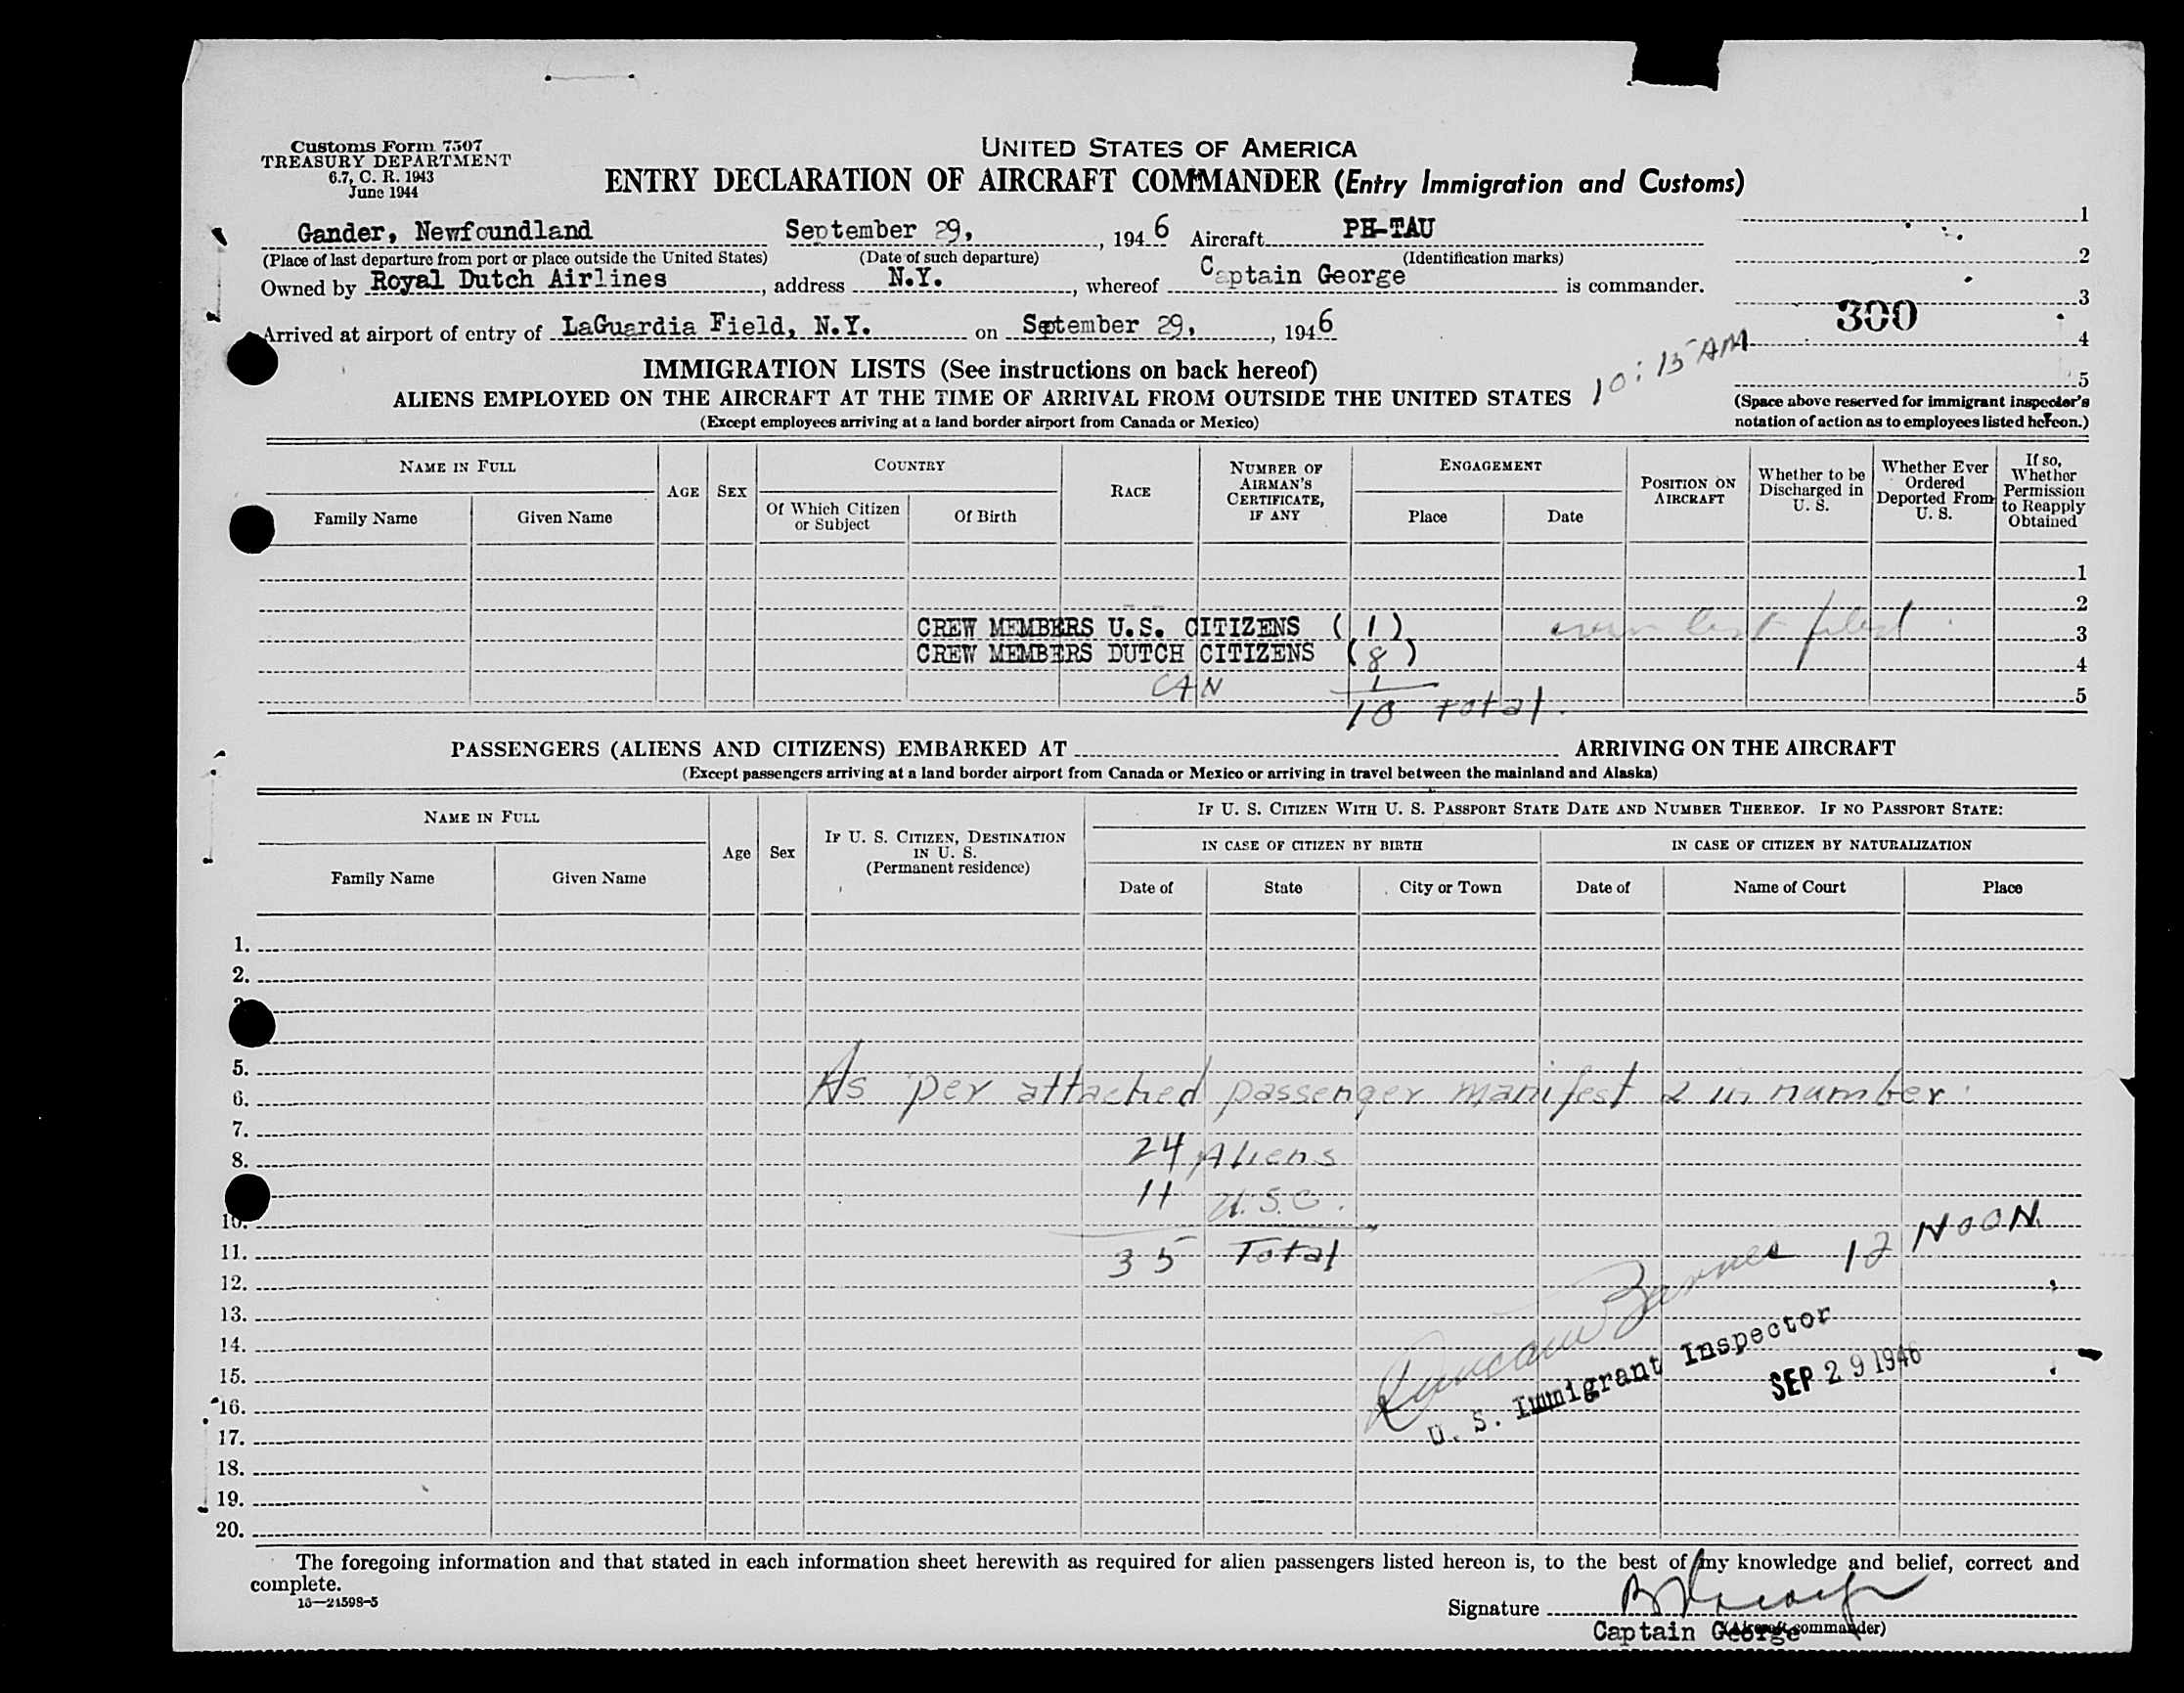 Customs Form 7507
TREASURY DEPARTMENT
6.7, C. R. 1943
June 1944
UNITED STATES OF AMERICA
ENTRY DECLARATION OF AIRCRAFT COMMANDER (Entry Immigration and Customs)
Gander, Newfoundland September 29, , 194 6 Aircraft PH-TAU
(Place of last departure from port or place outside the United States) (Date of such departure) (Identification marks)
Owned by Royal Dutch Airlines , address N.Y. , whereof Captain George is commander.
Arrived at airport of entry of LaGuardia Field, N.Y. on September 29, , 194 6
1
2
3
300
4
5
10:15 AM
(Space above reserved for immigrant inspector's
notation of action as to employees listed hereon.)
IMMIGRATION LISTS (See instructions on back hereof)
ALIENS EMPLOYED ON THE AIRCRAFT AT THE TIME OF ARRIVAL FROM OUTSIDE THE UNITED STATES
(Except employees arriving at a land border airport from Canada or Mexico)
NAME IN FULL
Family Name Given Name
AGE SEX
COUNTRY
Of Which Citizen or Subject Of Birth
RACE
NUMBER OF AIRMAN'S CERTIFICATE, IF ANY
ENGAGEMENT
Place Date
POSITION ON AIRCRAFT
Whether to be Discharged in U. S.
Whether Ever Ordered Deported From U. S.
If so, Whether Permission to Reapply Obtained
1
2
CREW MEMBERS U.S. CITIZENS ( 1 ) list filed 3
CREW MEMBERS DUTCH CITIZENS ( 8 ) 4
CAN 1 5
10 Total.
PASSENGERS (ALIENS AND CITIZENS) EMBARKED AT ARRIVING ON THE AIRCRAFT
(Except passengers arriving at a land border airport from Canada or Mexico or arriving in travel between the mainland and Alaska)
NAME IN FULL
Family Name Given Name
Age Sex
IF U. S. CITIZEN, DESTINATION IN U. S.
(Permanent residence)
IF U. S. CITIZEN WITH U. S. PASSPORT STATE DATE AND NUMBER THEREOF. IF NO PASSPORT STATE:
IN CASE OF CITIZEN BY BIRTH IN CASE OF CITIZEN BY NATURALIZATION
Date of State City or Town Date of Name of Court Place
1.
2.
5.
6. As per attached passenger manifest 2 in number.
7.
8. 24 Aliens
11 U.S.C.
10.
11. 35 Total
12 NOON
12.
13. Duncan Barnes
14.
U. S. Immigrant Inspector
15. SEP 29 1946
16.
17.
18.
19.
20.
The foregoing information and that stated in each information sheet herewith as required for alien passengers listed hereon is, to the best of my knowledge and belief, correct and
complete.
16—21598-5
Signature
Captain George
(Aircraft commander)